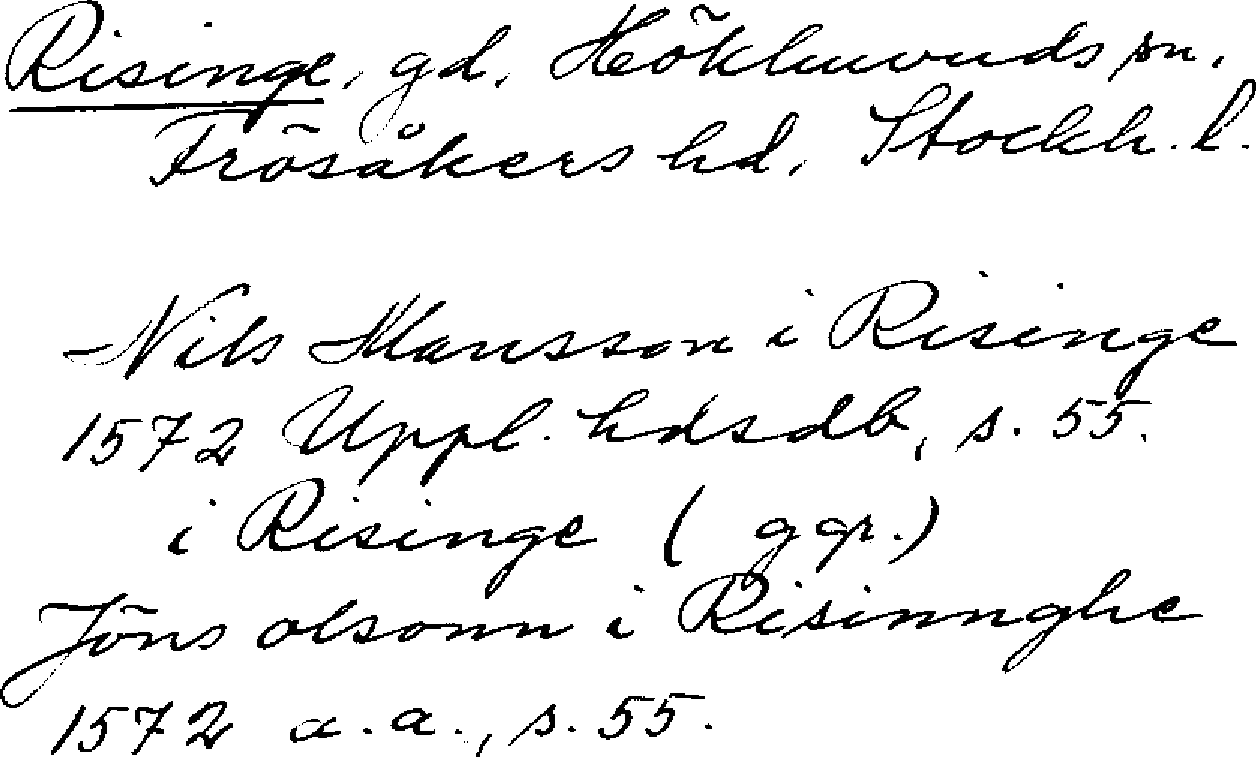 Risinge, gd, Hökhuvuds sn,
Frösåkers hd, Stockh. l.
Nils Mansson i Risinge
1572 Uppl. hdsdb, s. 55.
i Risinge ( ggr.)
Jöns olsonn i Risinnghe
1572 a. a., s. 55.